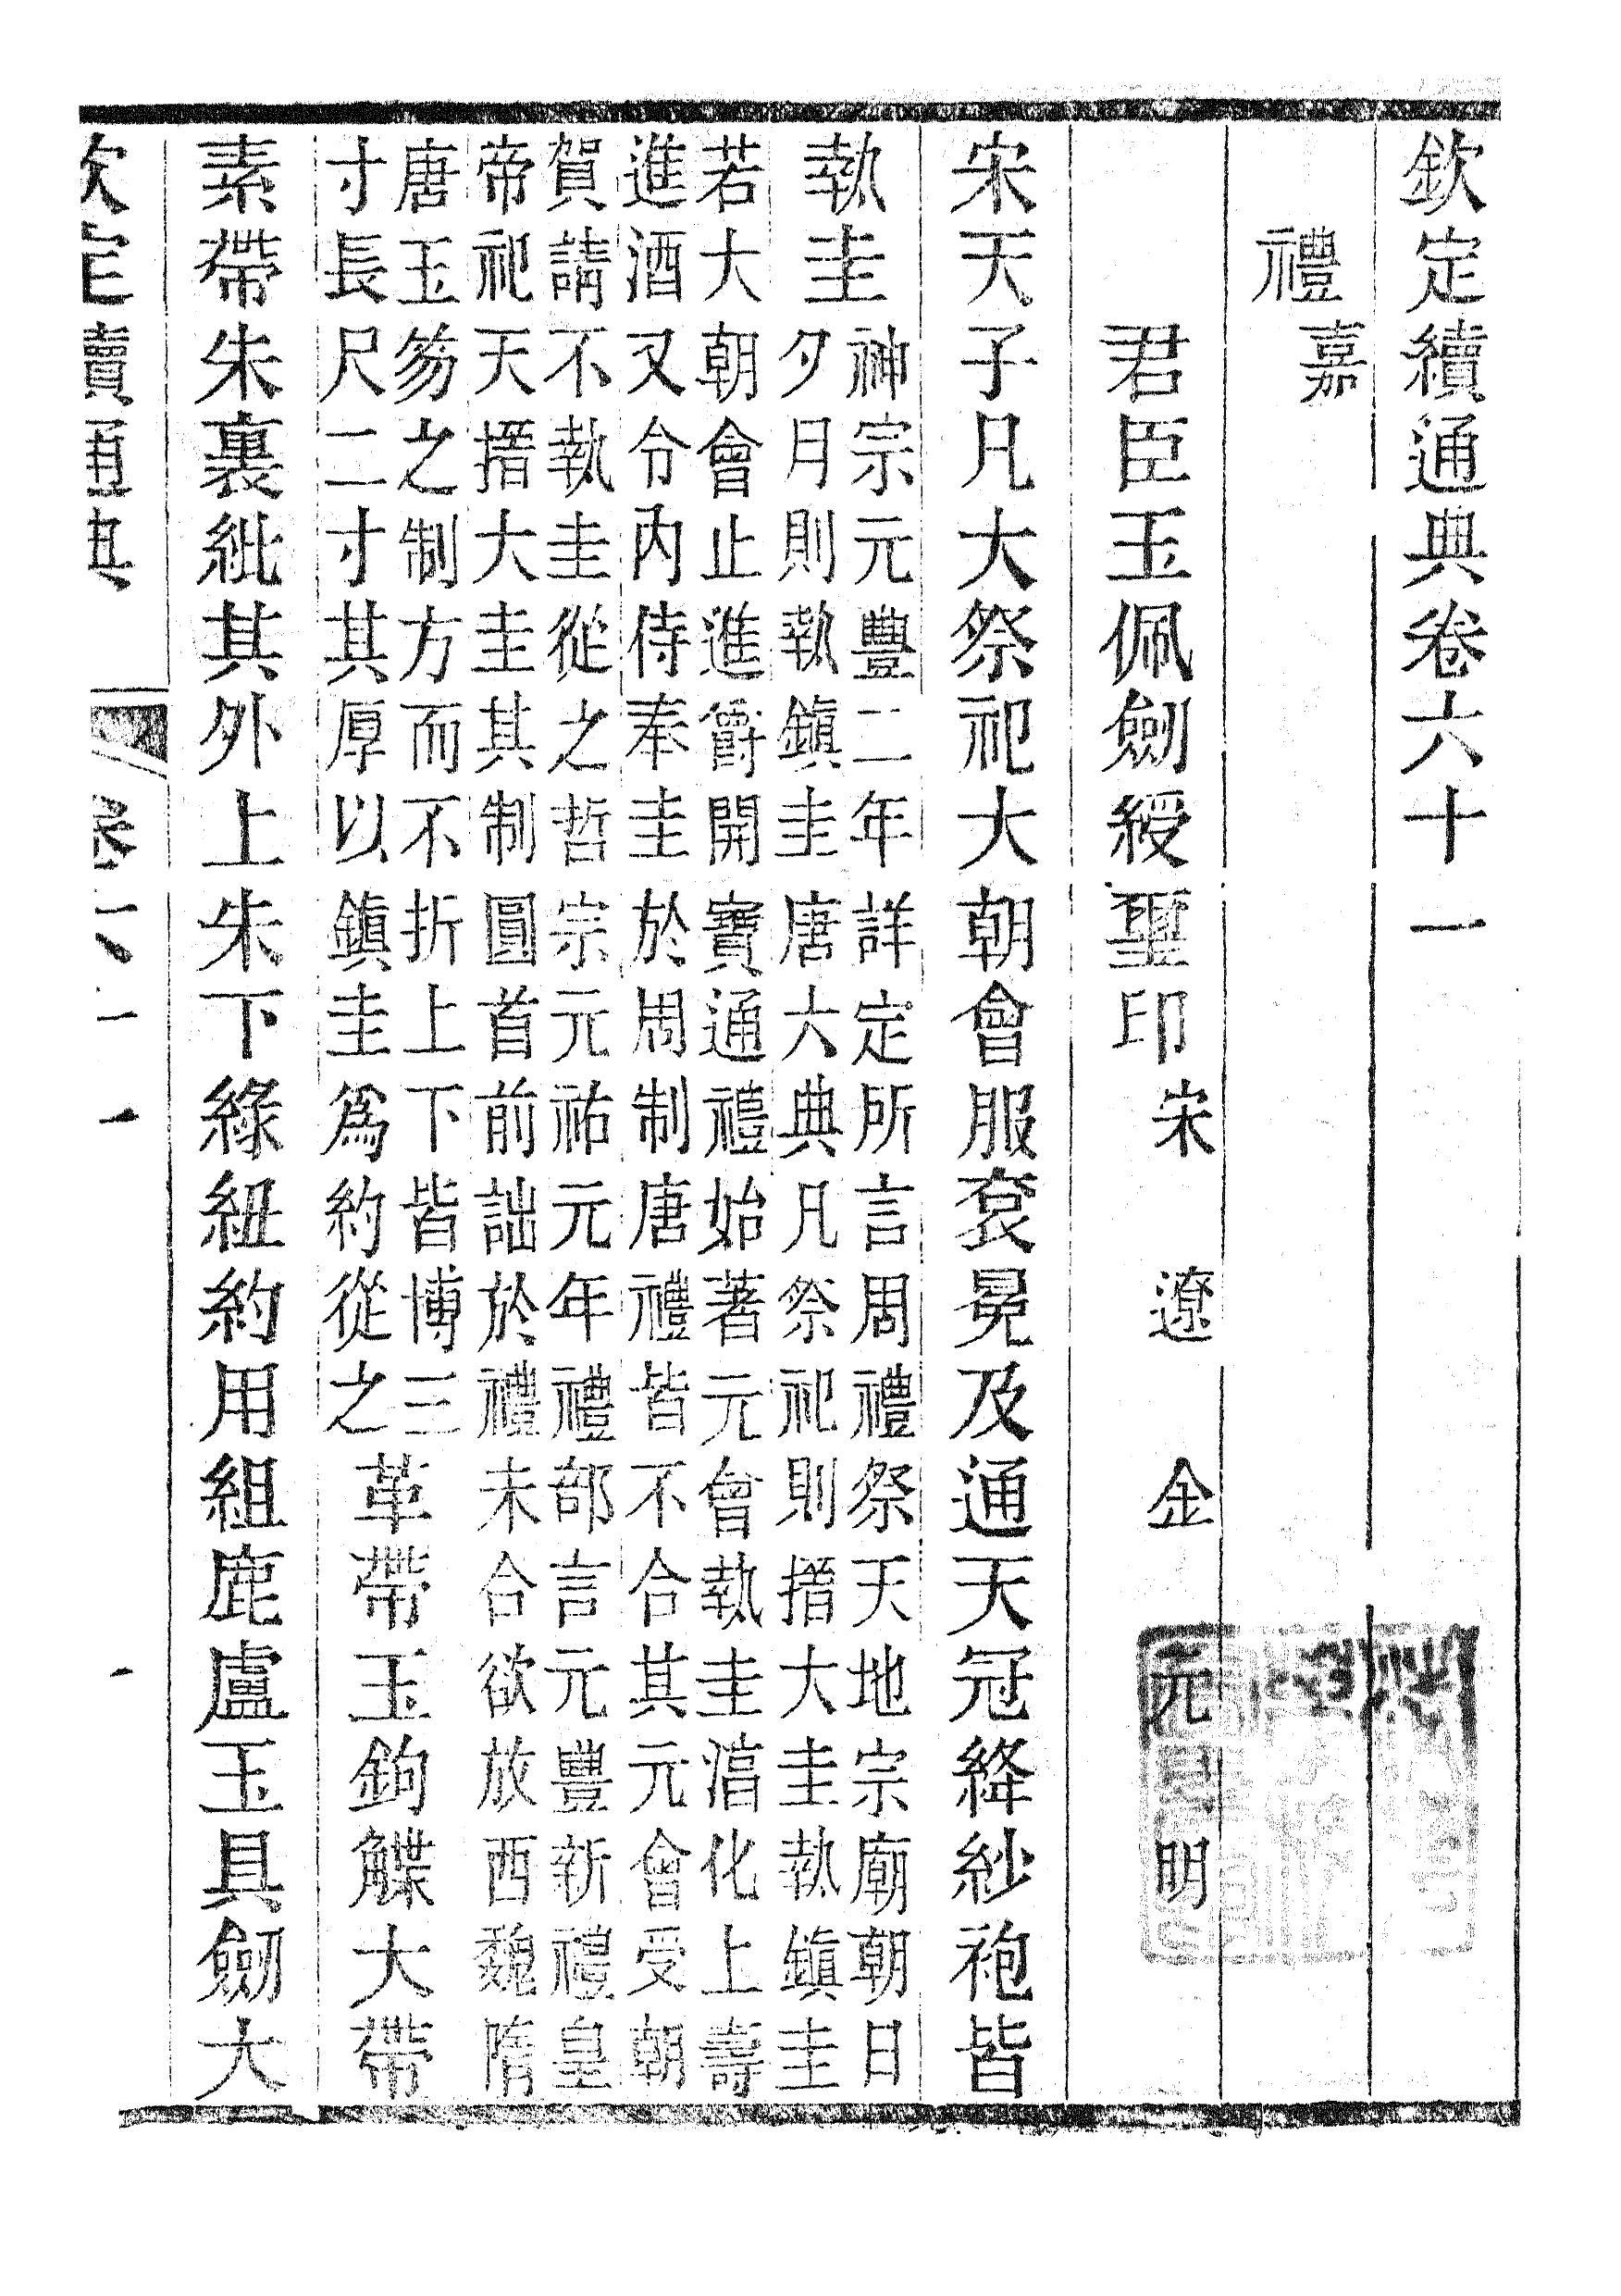 欽定續通典卷六十一
禮 嘉
君臣玉佩劍綬璽印 宋 遼 金 元 明
宋天子凡大祭祀大朝會服袞冕及通天冠絳紗袍皆
執圭
神宗元豐二年詳定所言周禮祭天地宗廟朝日
夕月則執鎮圭唐六典凡祭祀則搢大圭執鎮圭
若大朝會止進爵開寶通禮始著元會執圭湻化上壽
進酒又令內侍奉圭於周制唐禮皆不合其元會受朝
賀請不執圭從之哲宗元祐元年禮部言元豐新禮皇
帝祀天搢大圭其制圓首前詘於禮未合欲放西魏隋
唐玉笏之制方而不折上下皆博三
寸長尺二寸其厚以鎮圭爲約從之
革帶玉鉤䚢大帶
素帶朱裏紕其外上朱下綠紐約用組鹿盧玉具劍大
欽定續通典 卷六十一